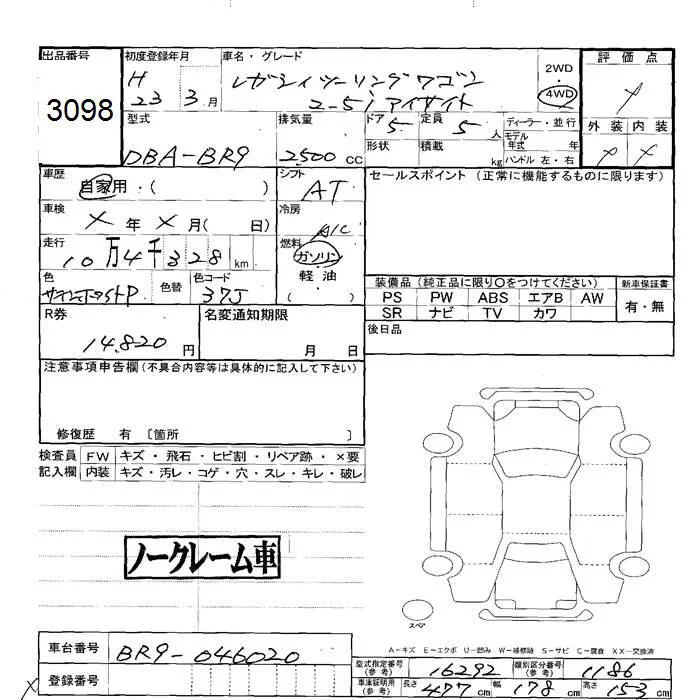 出品番号
3098
初度登録年月
H
23 3月
車名・グレード
レガシィツーリングワゴン
2-5i アイサイト
2WD
4WD
評価点
外装 内装
型式
DBA-BR9
排気量
2500 CC
ドア 5
形状
定員 5 人
積載 kg
ディーラー・並行
モデル
年式 年
ハンドル 左・右
車歴
自家用・( )
シフト
AT
セールスポイント (正常に機能するものに限ります)
車検
年 月( 日)
冷房
A/C
走行
10万4千328 km
燃料
ガソリン
軽油
( )
色
色替
色コード
37J
装備品(純正品に限り〇をつけてください)
PS PW ABS エアB AW
SR ナビ TV カワ
新車保証書
有・無
R券
14.820 円
名変通知期限
月 日
後日品
注意事項申告欄(不具合内容等は具体的に記入して下さい)
修復歴 有 〔箇所 〕
検査員
記入欄
FW キズ・飛石・ヒビ割・リペア跡・×要
内装 キズ・汚レ・コゲ・穴・スレ・キレ・破レ
ノークレーム車
スペア
A-キズ E-エクボ U-凹み W-補修跡 S-サビ C-腐食 XX-交換済
車台番号
BR9-046020
登録番号
型式指定番号
(参考)
16292
類別区分番号
(参考)
1186
車庫証明用
(参考)
長さ 477 cm 幅 178 cm 高さ 153 cm